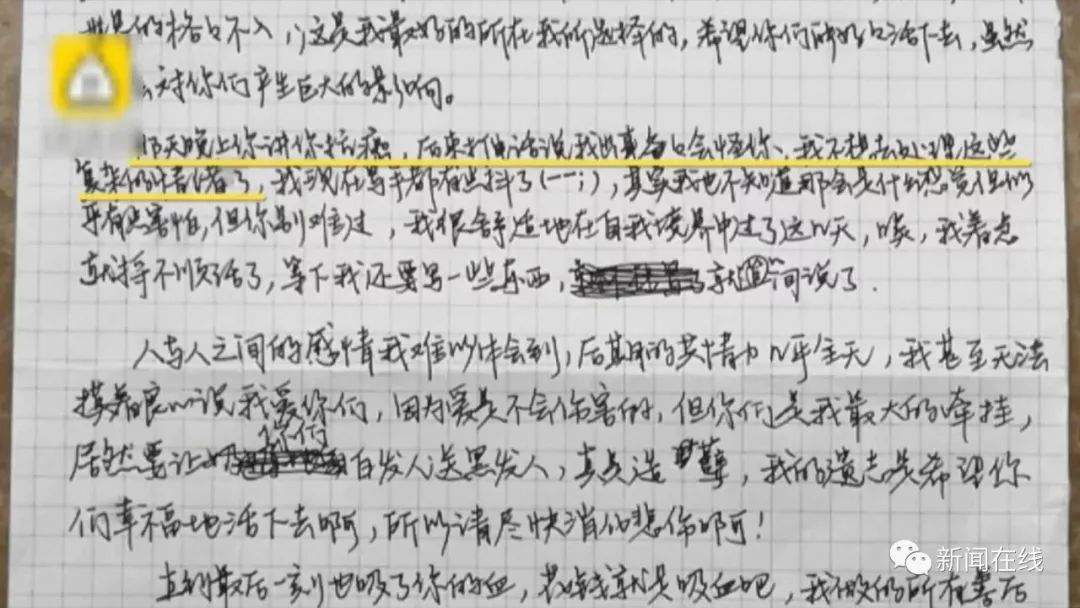 的格格不入，这是我最好的所在我所选择的，希望你们好好生活下去，虽然
对你们产生巨大的影响。
那天晚上你讲你抗癌，后来打电话说我出事自会怪你，我不想去处理这些
复杂的情绪了，我现在写字都有些抖了(一一;)，其实我也不知道那会是什么感觉但似
乎有些害怕，但你别难过，我很舒适地在自我境界中过了这以天，唉，我着急
就择不顺话了，等下我还要写一些东西，就回间说了.
人与人之间的感情我难以体会到，后期的共情力几乎全无，我甚至无法
摸着良心说我爱你们，因为爱是不会伤害的，但你们是我最大的牵挂，
居然要让你们白发人送黑发人，真是造孽，我的遗志是希望你
们幸福地活下去啊，所以请尽快消化悲伤啊！
直到最后一刻也吸了你的血，我就是吸血吧，我
新闻在线